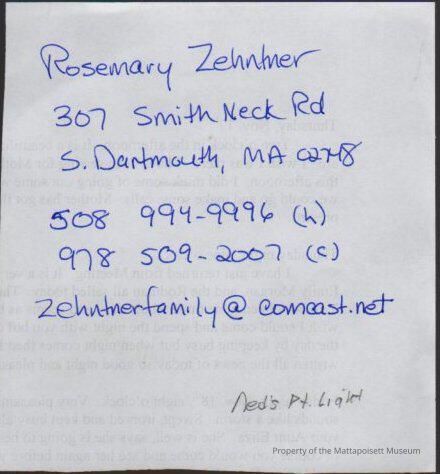 Rosemary Zehntner
307 Smith Neck Rd
S. Dartmouth, MA 02748
508 994-9996 (h)
978 509-2007 (c)
zehntnerfamily@comcast.net
Ned's Pt. Light
Property of the Mattapoisett Museum